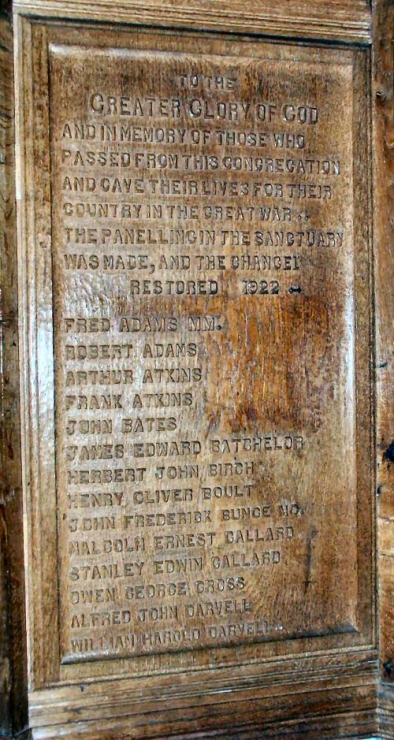 TO THE
GREATER GLORY OF GOD
AND IN MEMORY OF THOSE WHO
PASSED FROM THIS CONGREGATION
AND GAVE THEIR LIVES FOR THEIR
COUNTRY IN THE GREAT WAR
THE PANELLING IN THE SANCTUARY
WAS MADE, AND THE CHANCEL
RESTORED 1922
FRED ADAMS MM.
ROBERT ADAMS
ARTHUR ATKINS
FRANK ATKINS
JOHN BATES
JAMES EDWARD BATCHELOR
HERBERT JOHN BIRCH
HENRY OLIVER BOULT
JOHN FREDERICK BUNCE
MALCOLM ERNEST CALLARD
STANLEY EDWIN CALLARD
OWEN GEORGE CROSS
ALFRED JOHN DARVELL
WILLIAM HAROLD DARVELL